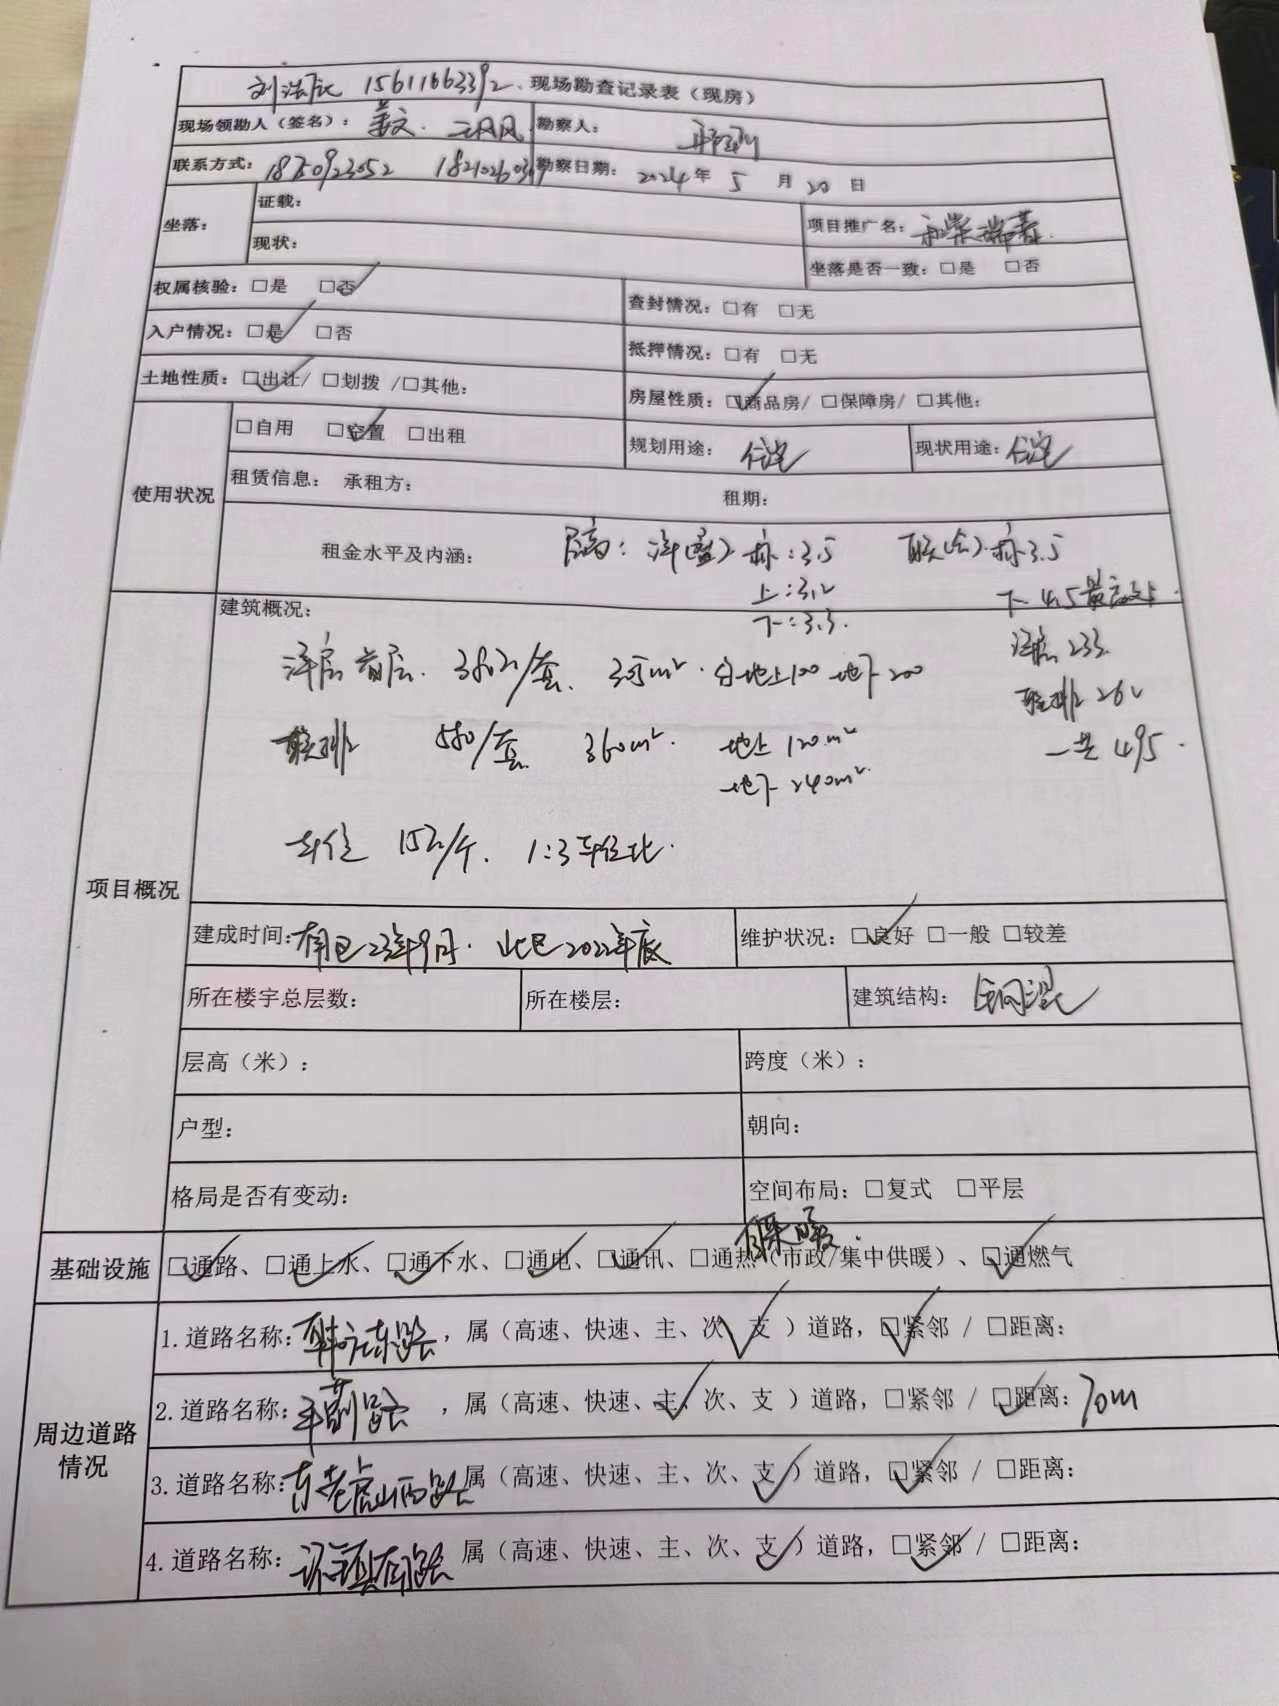 15611663392 现场勘查记录表（现房）
现场领勘人（签名）： 姜文 勘察人：
联系方式： 勘察日期： 2024 年 5 月 20 日
坐落： 证载： 项目推广名：
现状： 坐落是否一致：□是 □否
权属核验：□是 □否 查封情况：□有 □无
入户情况：□是 □否 抵押情况：□有 □无
土地性质：□出让/ □划拨 /□其他： 房屋性质：□商品房/ □保障房/ □其他：
使用状况 □自用 □空置 □出租 规划用途： 住宅 现状用途： 住宅
租赁信息： 承租方： 租期：
租金水平及内涵： 层高：洋 标：3.5 联 标3.5
上：3.2 下 4.5最高
下：3.3.
项目概况 建筑概况：
洋房 233.
洋房首层. 380万/套. 地上100 地下200
联排 262
联排 580/套 360m². 地上 120m² 一共 495.
地下 240m².
车位 15万/个. 1:3车位比.
建成时间： 南区23年9月. 北区2022年底 维护状况：□良好 □一般 □较差
所在楼宇总层数： 所在楼层： 建筑结构： 钢混
层高（米）： 跨度（米）：
户型： 朝向：
格局是否有变动： 空间布局：□复式 □平层
基础设施 □通路、□通上水、□通下水、□通电、□通讯、□通热（市政/集中供暖）、□通燃气
自采暖.
周边道路情况 1.道路名称： ，属（高速、快速、主、次、支 ）道路，□紧邻 / □距离：
2.道路名称： ，属（高速、快速、主、次、支 ）道路，□紧邻 / □距离： 70m
3.道路名称： 东老虎山西路 属（高速、快速、主、次、支 ）道路，□紧邻 / □距离：
4.道路名称： 环镇南路 属（高速、快速、主、次、支 ）道路，□紧邻 / □距离：